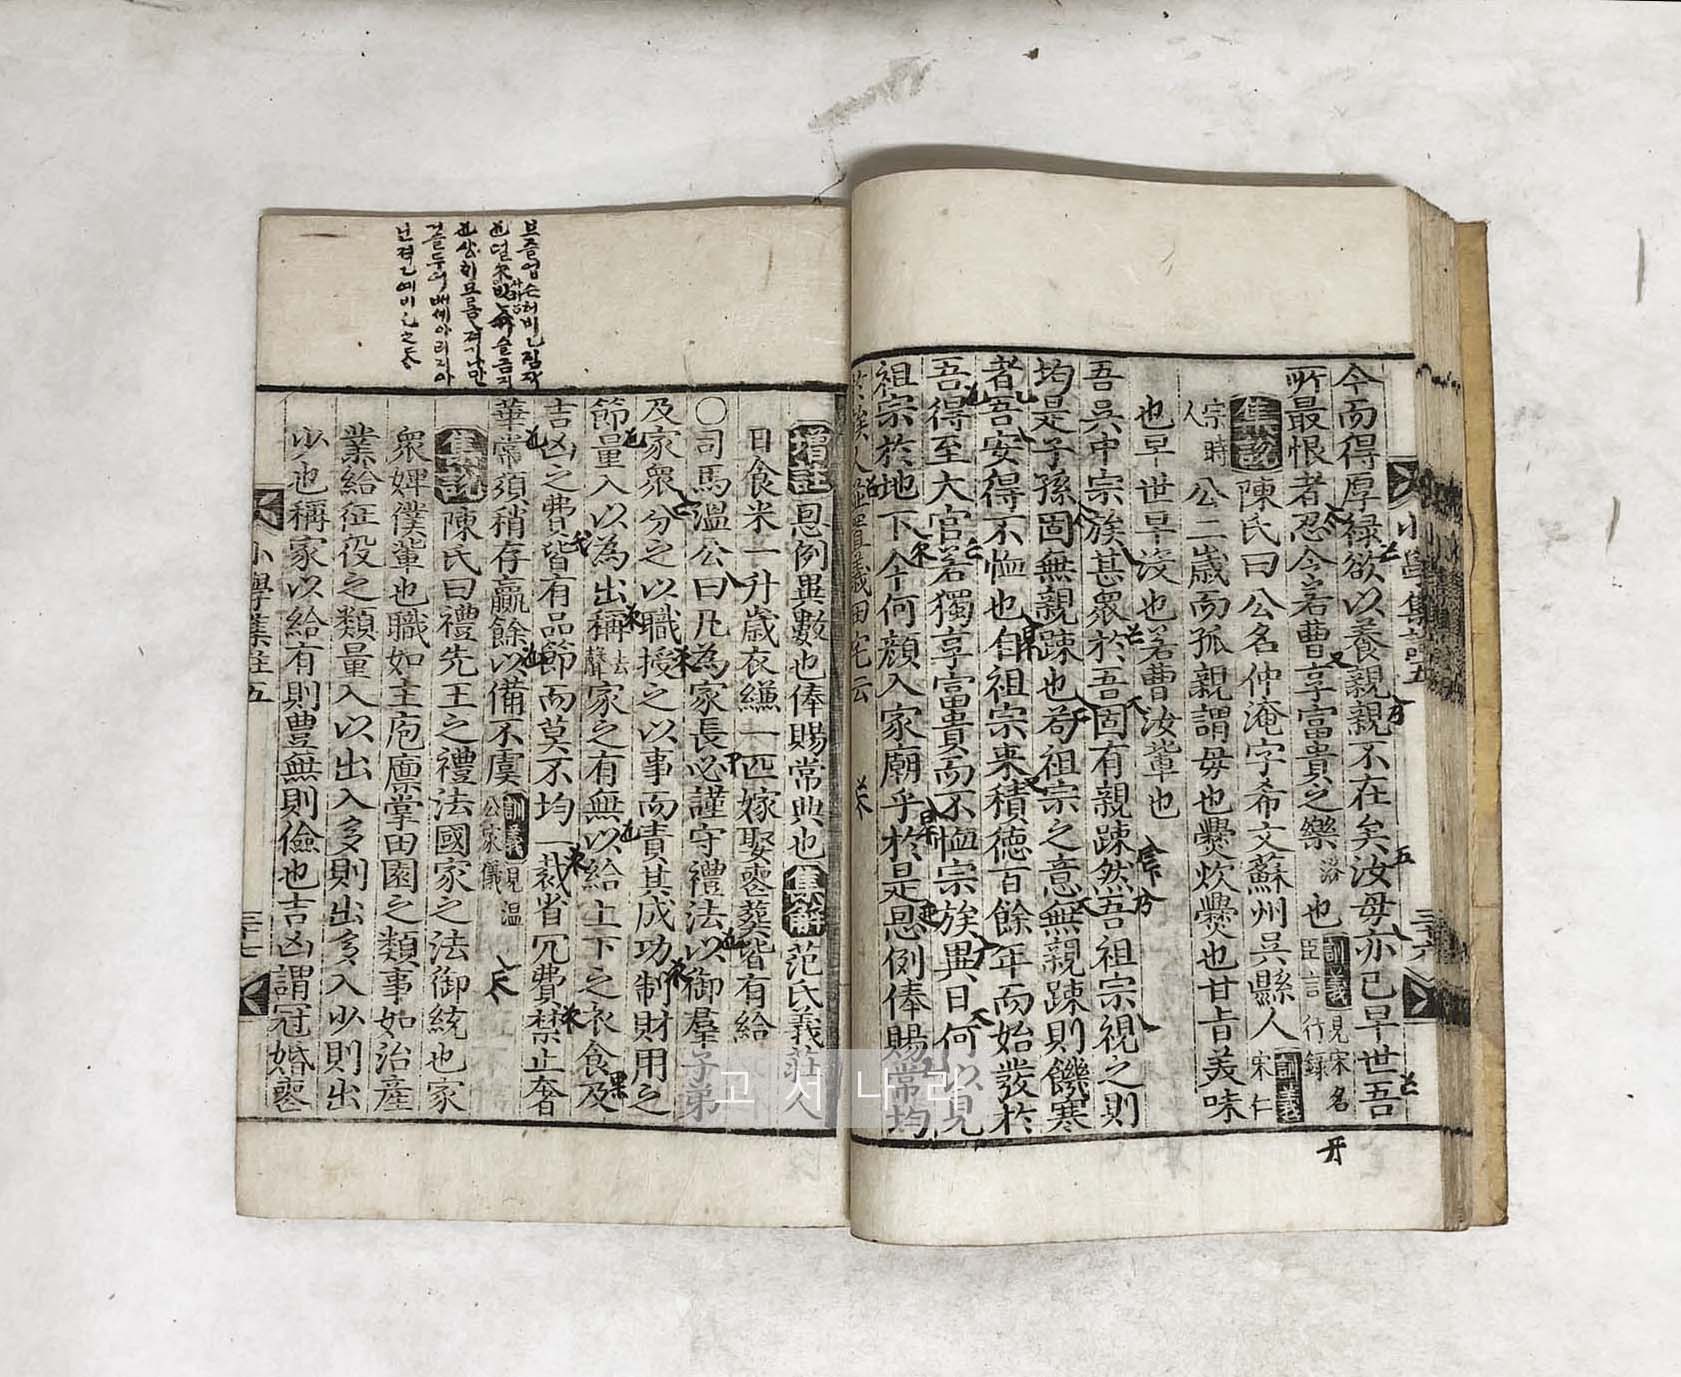 今而得厚祿欲以養親親不在矣汝母亦已早世吾
所最恨者忍令若曹享富貴之樂 洛 也 訓義 見宋名臣言行錄
集說 陳氏曰公名仲淹字希文蘇州吳縣人 訓義 宋仁
宗時人 公二歲而孤親謂母也爨炊爨也甘旨美味
也早世早沒也若曹汝輩也
吾吳中宗族甚衆於吾固有親踈然吾祖宗視之則
均是子孫固無親踈也苟祖宗之意無親踈則饑寒
者吾安得不恤也自祖宗來積德百餘年而始發於
吾得至大官若獨享富貴而不恤宗族異日何以見
祖宗於地下今何顔入家廟乎於是恩例俸賜常均
於族人並置義田宅云
小學集註五
三十六
增註 恩例異數也俸賜常典也 集解 范氏義莊人
日食米一升歲衣縑一匹嫁娶喪葬皆有給
○司馬溫公曰凡為家長必謹守禮法以御羣子弟
及家衆分之以職授之以事而責其成功制財用之
節量入以為出稱 去聲 家之有無以給上下之衣食及
吉凶之費皆有品節而莫不均一裁省冗費禁止奢
華常須稍存贏餘以備不虞 訓義 見溫公家儀
集說 陳氏曰禮先王之禮法國家之法御統也家
衆婢僕輩也職如主庖廩掌田園之類事如治產
業給征役之類量入以出入多則出多入少則出
少也稱家以給有則豊無則儉也吉凶謂冠婚喪
小學集註五
三十七
고서나라